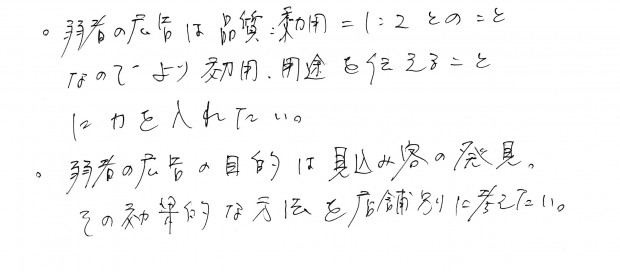 。弱者の広告は品質:効用=1:2とのこと
なのでより効用、用途を伝えること
に力を入れたい。
。弱者の広告の目的は見込み客の発見。
その効果的な方法を店舗別に考えたい。